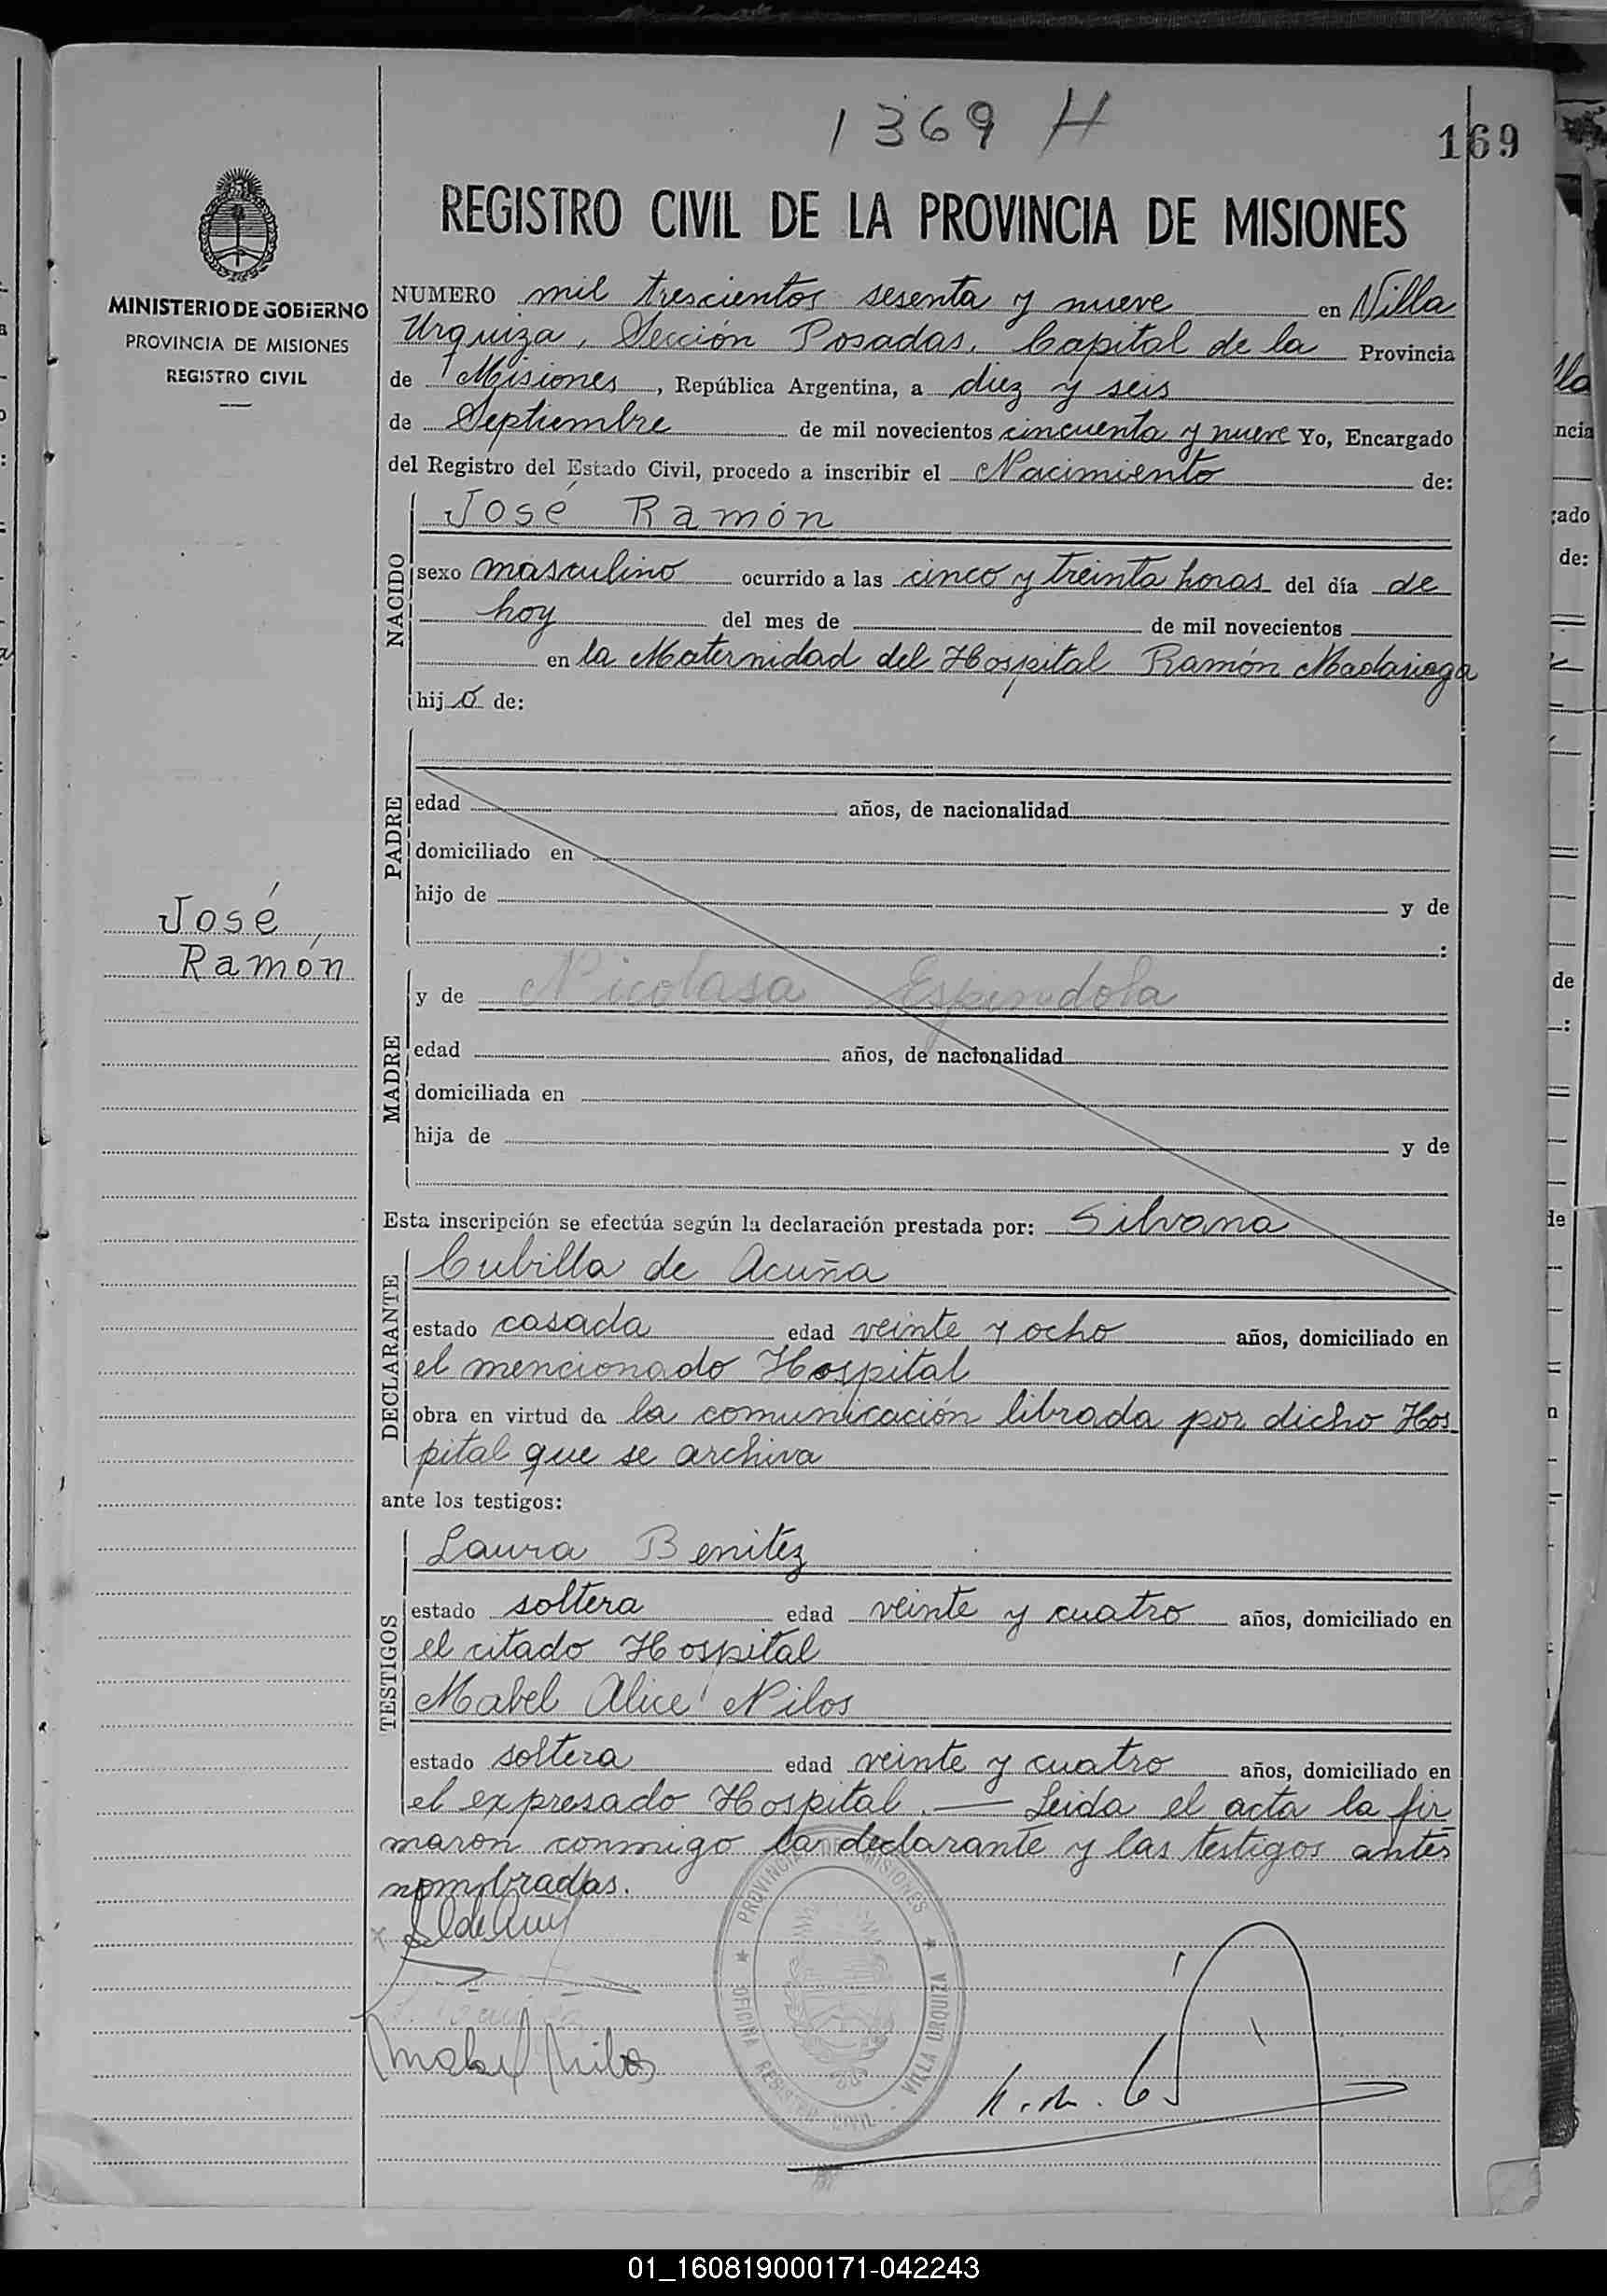 1369 H
169
REGISTRO CIVIL DE LA PROVINCIA DE MISIONES
MINISTERIO DE GOBIERNO
PROVINCIA DE MISIONES
REGISTRO CIVIL
NUMERO mil trescientos sesenta y nueve en Villa
Urquiza, Sección Posadas, Capital de la Provincia
de Misiones, República Argentina, a diez y seis
de Septiembre de mil novecientos cincuenta y nueve Yo, Encargado
del Registro del Estado Civil, procedo a inscribir el Nacimiento de:
José Ramón
NACIDO
sexo masculino ocurrido a las cinco y treinta horas del día de
hoy del mes de de mil novecientos
en la Maternidad del Hospital Ramón Madariaga
hijo de:
PADRE
edad años, de nacionalidad
domiciliado en
hijo de y de
:
José
Ramón
MADRE
y de Nicolasa Espindola
edad años, de nacionalidad
domiciliada en
hija de y de
Esta inscripción se efectúa según la declaración prestada por: Silvana
Cubilla de Acuña
DECLARANTE
estado casada edad veinte y ocho años, domiciliado en
el mencionado Hospital
obra en virtud de la comunicación librada por dicho Hos
pital que se archiva
ante los testigos:
TESTIGOS
Laura Benitez
estado soltera edad veinte y cuatro años, domiciliado en
el citado Hospital
Mabel Alice Nilos
estado soltera edad veinte y cuatro años, domiciliado en
el expresado Hospital. — Leida el acta la fir
maron conmigo la declarante y las testigos antes
nombradas.
Mabel Nilos
PROVINCIA DE MISIONES
OFICINA REGISTRO CIVIL - VILLA URQUIZA
01_160819000171-042243